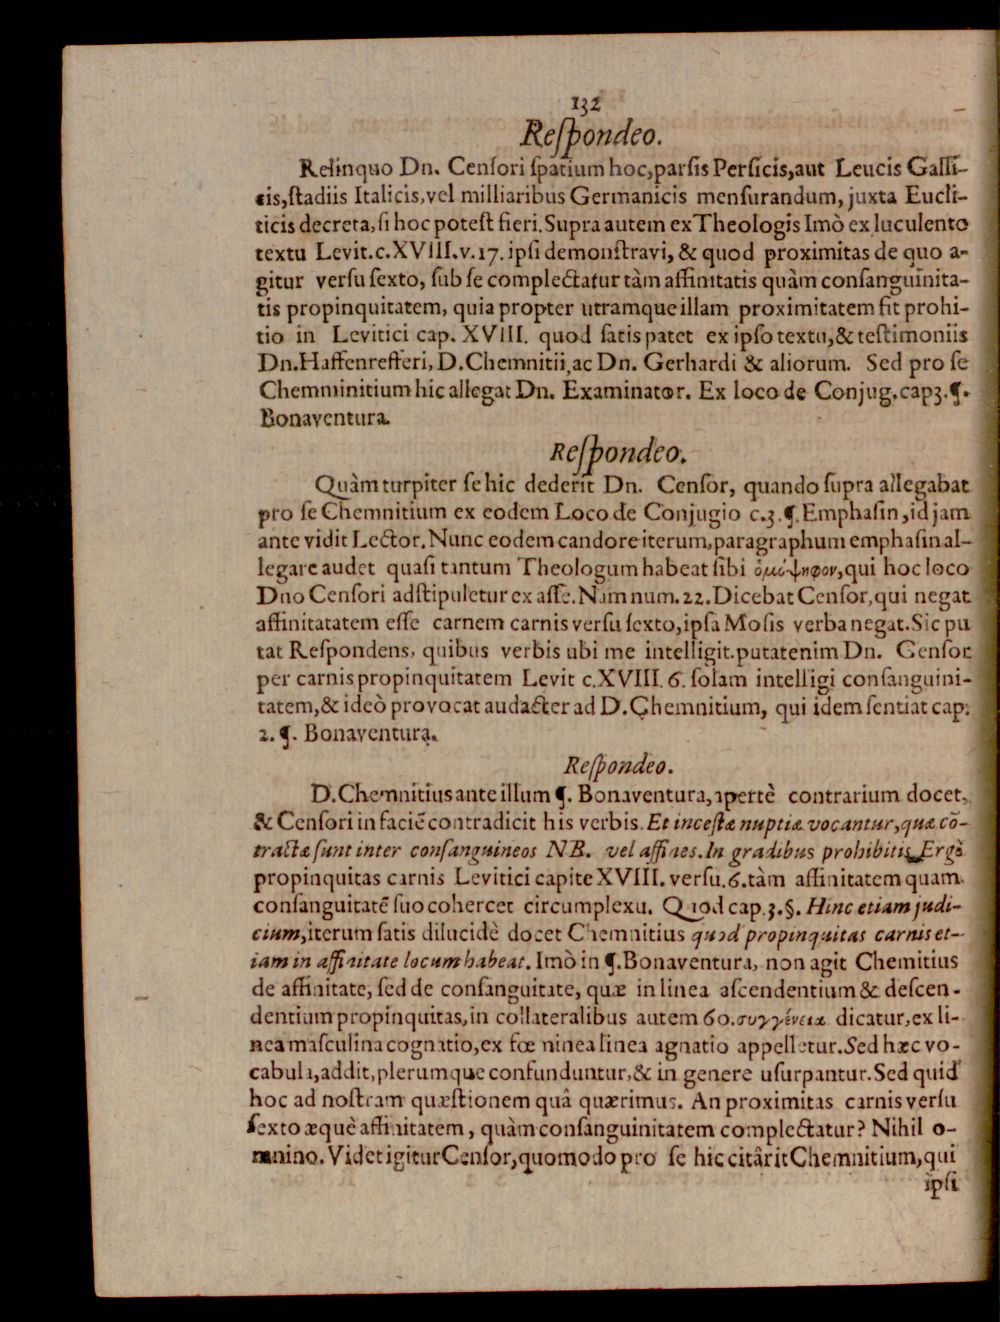 132
Reſpondeo.
Relinquo Dn. Cenſori ſpatium hoc, parſis Perſicis, aut Leucis Galli-
cis, ſtadiis Italicis, vel milliaribus Germanicis menſurandum, juxta Eucli-
ticis decreta, ſi hoc poteſt fieri. Supra autem ex Theologis Imò ex luculento
textu Levit. c. XVIII. v. 17. ipſi demonſtravi, & quod proximitas de quo a-
gitur verſu ſexto, ſub ſe complectatur tàm affinitatis quàm conſanguinita-
tis propinquitatem, quia propter utramque illam proximitatem fit prohi-
tio in Levitici cap. XVIII. quod ſatis patet ex ipſo textu, & teſtimoniis
Dn. Haffenrefferi, D. Chemnitii, ac Dn. Gerhardi & aliorum. Sed pro ſe
Chemminitium hic allegat Dn. Examinator. Ex loco de Conjug. cap 3. ¶.
Bonaventura.
Reſpondeo.
Quàm turpiter ſe hic dederit Dn. Cenſor, quando ſupra allegabat
pro ſe Chemnitium ex eodem Loco de Conjugio c. 3. ¶. Emphaſin, id jam
ante vidit Lector. Nunc eodem candore iterum, paragraphum emphaſin al-
legare audet quaſi tantum Theologum habeat ſibi ὁμόψηφον, qui hoc loco
Dno Cenſori adſtipuletur ex aſſe. Nam num. 22. Dicebat Cenſor, qui negat
affinitatatem eſſe carnem carnis verſu ſexto, ipſa Moſis verba negat. Sic pu
tat Reſpondens, quibus verbis ubi me intelligit. putat enim Dn. Cenſor
per carnis propinquitatem Levit c. XVIII. 6. ſolam intelligi conſanguini-
tatem, & ideò provocat audacter ad D. Chemnitium, qui idem ſentiat cap.
2. ¶. Bonaventura.
Reſpondeo.
D. Chemnitius ante illum ¶. Bonaventura, apertè contrarium docet,
& Cenſori in faciē contradicit his verbis. Et inceſtæ nuptiæ vocantur, quæ cō-
tractæ ſunt inter conſanguineos NB. vel affines. In gradibus prohibitis Ergò
propinquitas carnis Levitici capite XVIII. verſu. 6. tàm affinitatem quam
conſanguitatē ſuo cohercet circumplexu. Quod cap. 3. §. Hinc etiam judi-
cium, iterum ſatis dilucidè docet Chemnitius quod propinquitas carnis et-
iam in affinitate locum habeat. Imò in ¶. Bonaventura, non agit Chemitius
de affinitate, ſed de conſanguitate, quæ in linea aſcendentium & deſcen-
dentium propinquitas, in collateralibus autem 60. συγγένεια dicatur, ex li-
nea maſculina cognatio, ex fœ ninea linea agnatio appelletur. Sed hæc vo-
cabula, addit, plerumque confunduntur, & in genere uſurpantur. Sed quid
hoc ad noſtram quæſtionem quâ quærimus. An proximitas carnis verſu
ſexto æquè affinitatem, quàm conſanguinitatem complectatur? Nihil o-
mnino. Videt igitur Cenſor, quomodo pro ſe hic citârit Chemnitium, qui
ipſi